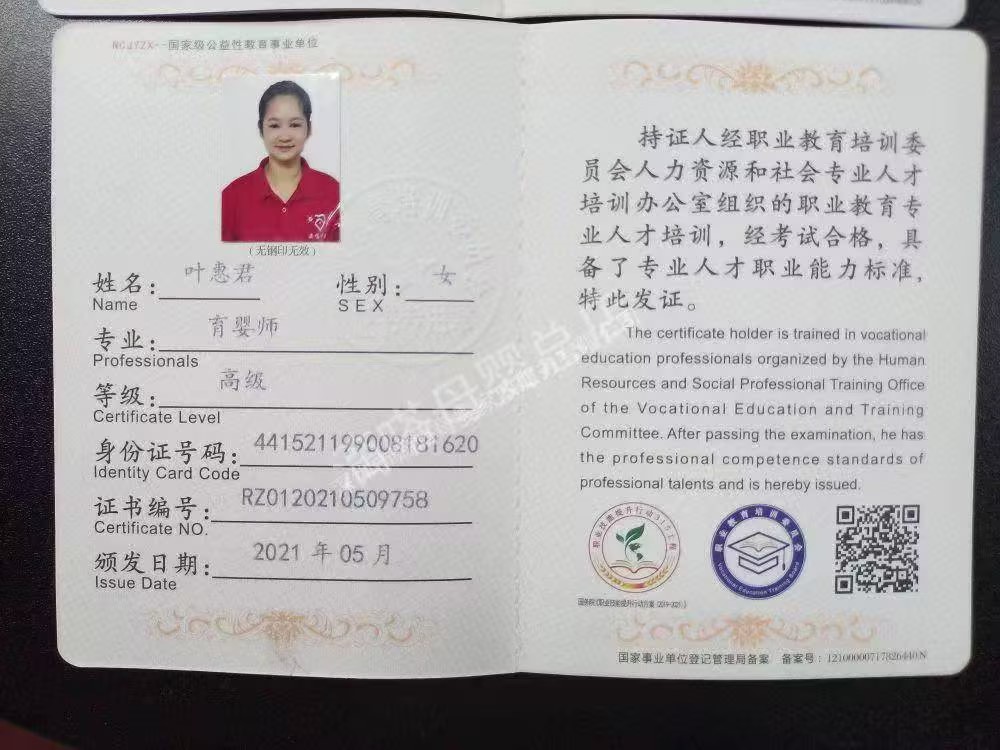 NCJYZX--国家级公益性教育事业单位
(无钢印无效)
姓名: 叶惠君 性别: 女
Name SEX
专业: 育婴师
Professionals
等级: 高级
Certificate Level
身份证号码: 441521199008181620
Identity Card Code
证书编号: RZ0120210509758
Certificate NO.
颁发日期: 2021 年 05 月
Issue Date
持证人经职业教育培训委
员会人力资源和社会专业人才
培训办公室组织的职业教育专
业人才培训，经考试合格，具
备了专业人才职业能力标准,
特此发证。
The certificate holder is trained in vocational
education professionals organized by the Human
Resources and Social Professional Training Office
of the Vocational Education and Training
Committee. After passing the examination, he has
the professional competence standards of
professional talents and is hereby issued.
职业技能提升行动315工程
职业教育培训委员会
Vocational Education Training Board
国务院《职业技能提升行动方案（2019-2021）》
国家事业单位登记管理局备案 备案号：12100000717826440N